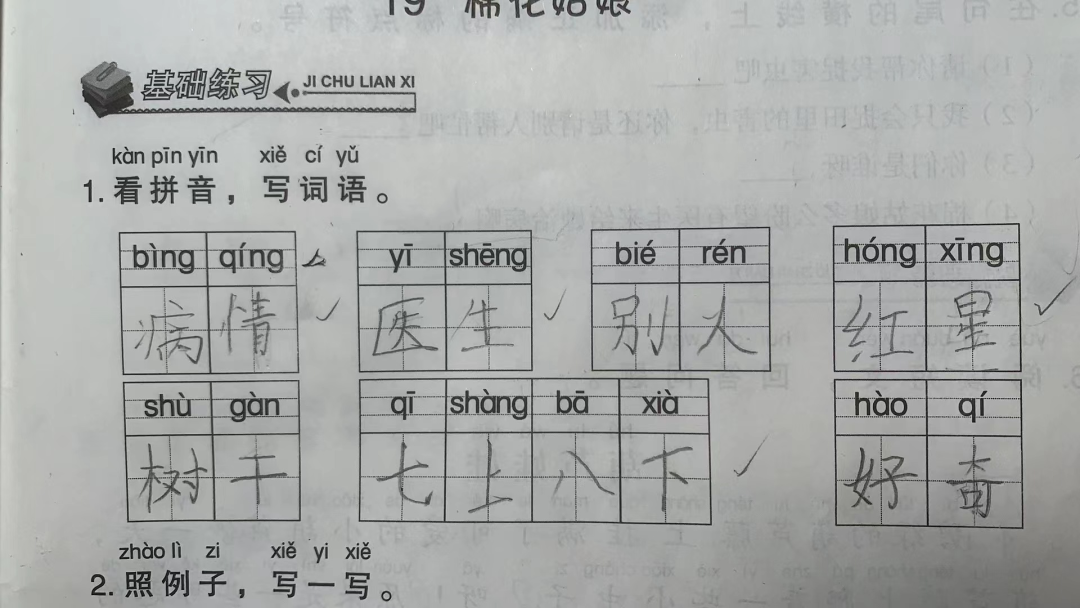 19 棉花姑娘
基础练习 JI CHU LIAN XI
kàn pīn yīn xiě cí yǔ
1. 看拼音，写词语。
bìng qíng yī shēng bié rén hóng xīng
病情 医生 别人 红星
shù gàn qī shàng bā xià hào qí
树干 七上八下 好奇
zhào lì zi xiě yi xiě
2. 照例子，写一写。